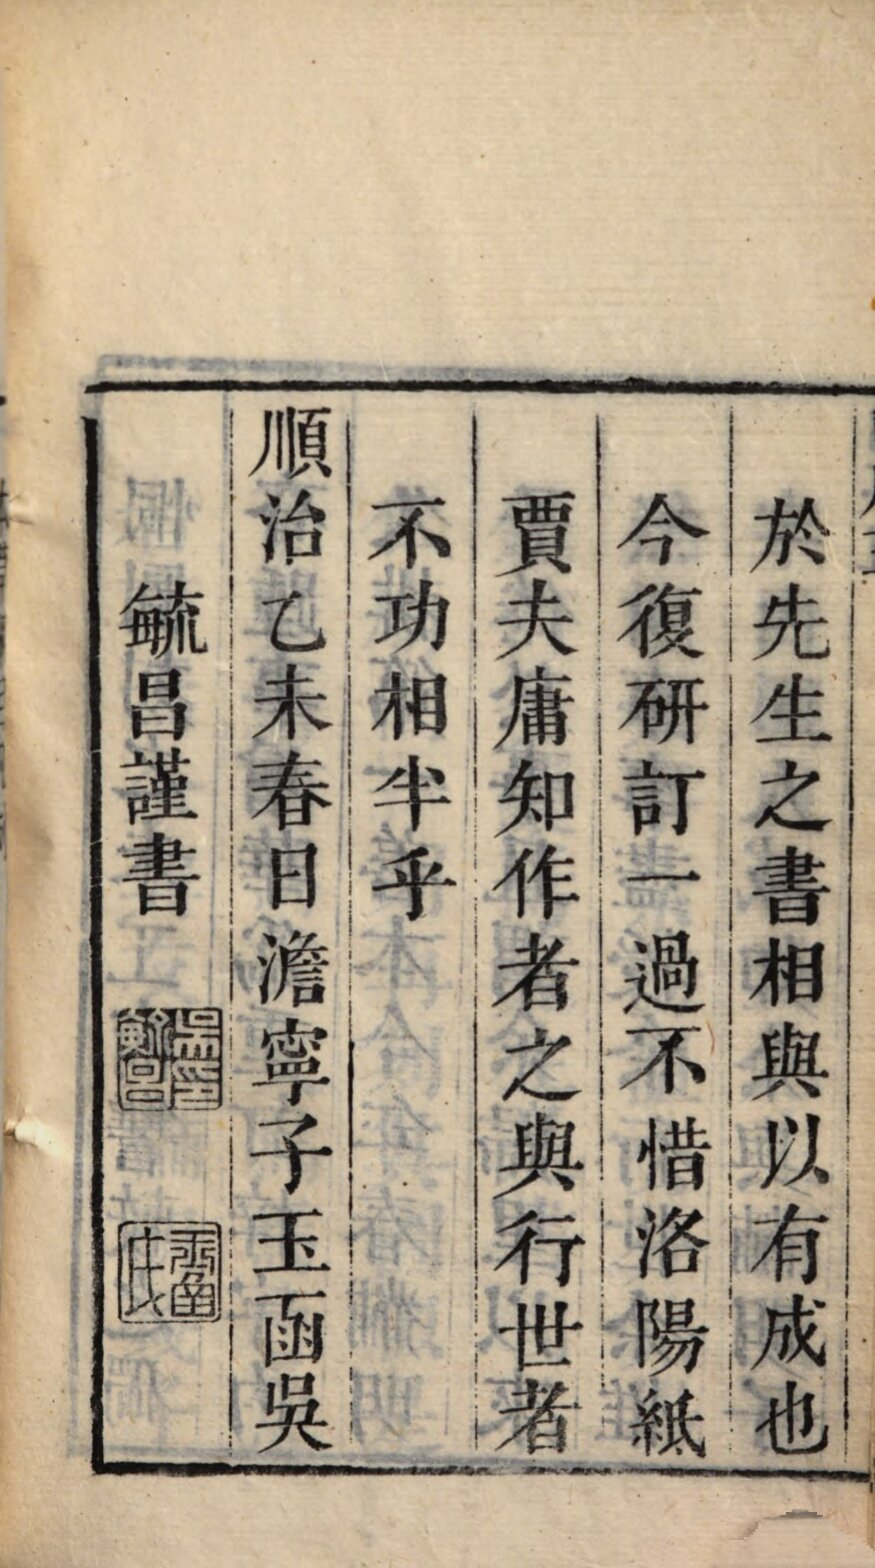 於先生之書相與以有成也
今復研訂一過不惜洛陽紙
賈夫庸知作者之與行世者
不功相半乎
順治乙未春日澹寧子玉函吳
毓昌謹書
吳印毓昌
玉函氏